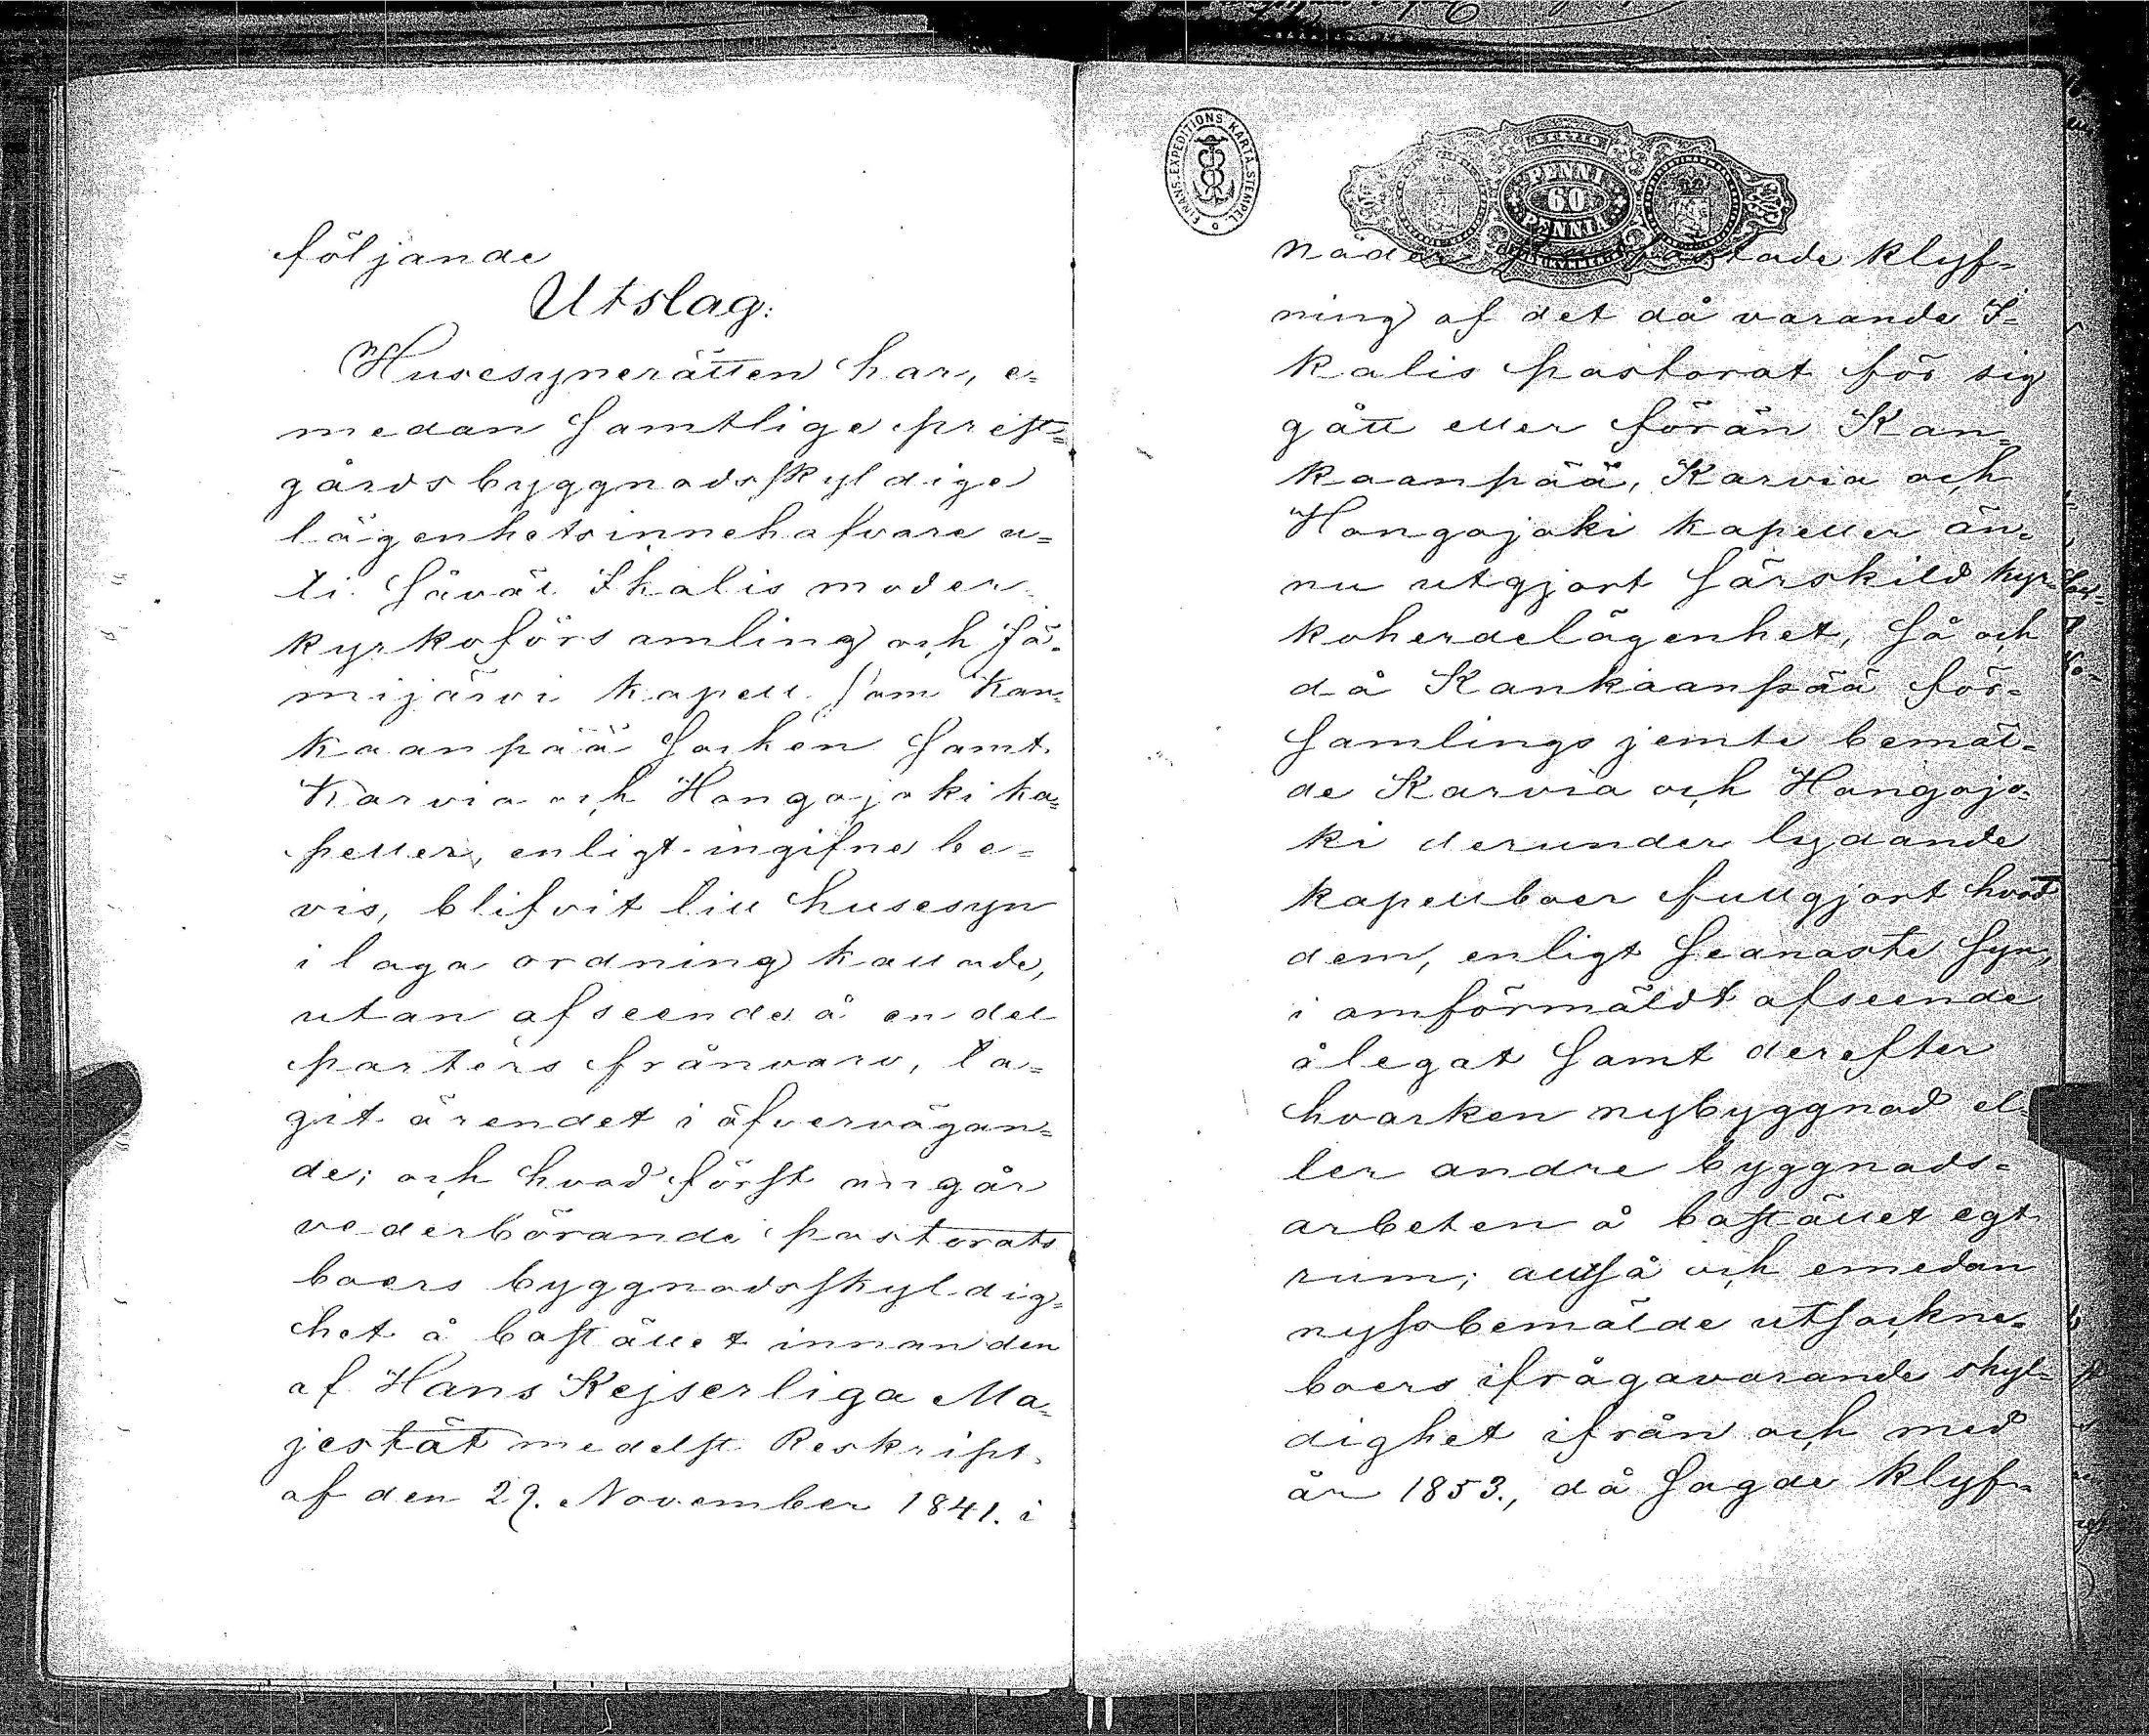 följande
Utslag:
Husesynerätten har, e=
medan samtlige prest=
gårdsbyggnadsskyldige
lägenhetsinnehafvare u=
ti såväl Ikalis moder
kyrkoförsamling och Jä=
mijärvi kapell som Kan=
kaanpää socken samt
Karvia och Hongojoki ka=
peller, enligt ingifne be=
vis, blifvit till husesyn
i laga ordning kallade,
utan afseende å en del
parters frånvaro, ta=
git ärendet i öfvervägan=
de; och hvad först angår
vederbörande pastorats
boers byggnadsskyldig=
het å bostället innan den
af Hans Kejserliga Ma=
jestät medelst Reskript
af den 29. November 1841. i
FINANS-EXPEDITIONS KARTA-STEMPEL
PENNI
60
PENNIÄ
nåder klyf=
ning af det då varande I=
kalis pastorat för sig
gått eller förän Kan=
kaanpää, Karvia och
Hongojoki kapeller än=
nu utgjort särskild kyr=
koherdelägenhet, så och
då Kankaanpää för=
samlings jemte bemäl=
de Karvia och Hongojo=
ki derunder lydande
kapellboer fullgjort hvad
dem, enligt senaste syn,
i omförmäldt afseende
ålegat samt derefter
hvarken nybyggnad el=
ler andre byggnads=
arbeten å bostället egt
rum; alltså och emedan
nyssbemälde utsockne=
boers ifrågavarande skyl=
dighet ifrån och med
år 1853., då sagde klyf=